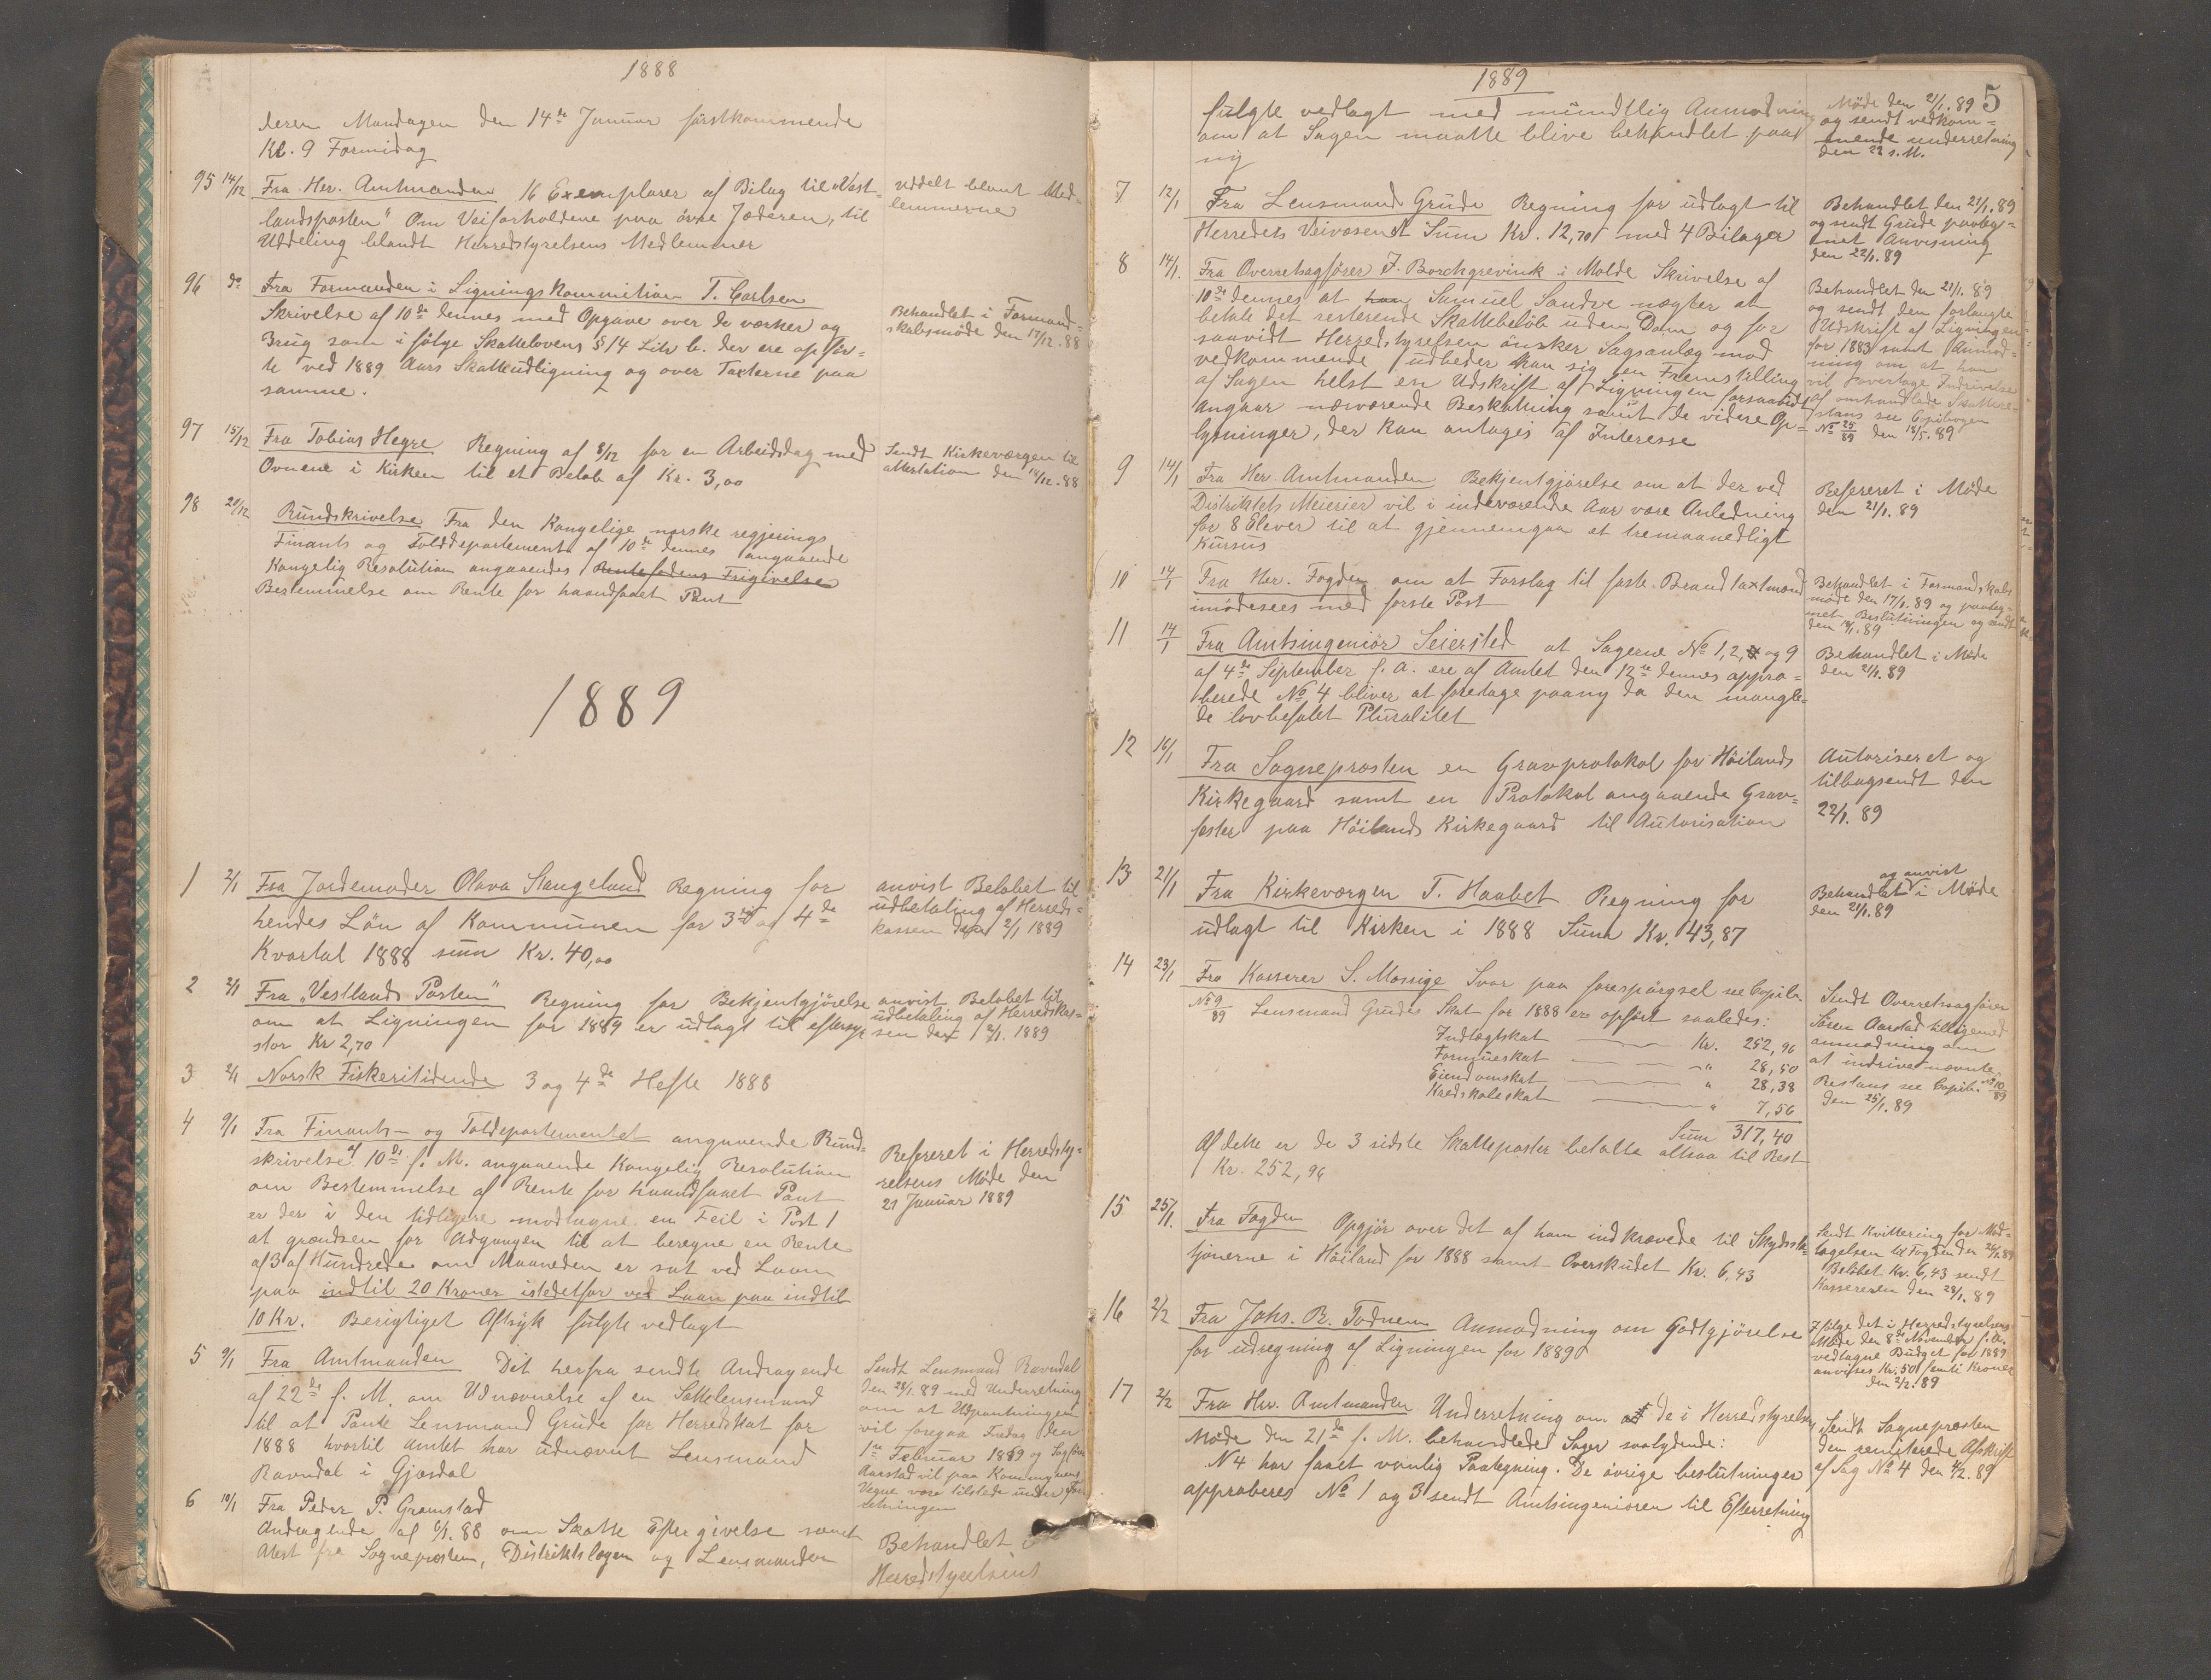 1888
deren Mandagen den 14de Januar förstkommende
Kl. 9 Formidag
95 14/12 Fra Her. Amtmanden 16 Exemplarer af Bilag til "Vest-
landsposten" Om Veiforholdene paa övre Jæderen, til
Uddeling blandt Herredstyrelsens Medlemmer
uddelt blant Med-
lemmerne
96 do Fra Formanden i Ligningskommition T. Carlsen
Skrivelse af 10de dennes med Opgave over de værker og
Brug som i fölge Skattelovens § 14 Litr b. der ere opför-
te ved 1889 Aars Skatteudligning og over Taxterne paa
samme.
Behandlet i Formand-
skabsmöde den 17/12. 88
97 15/12 Fra Tobias Hegre Regning af 8/12 for en Arbeidsdag med
Ovnene i Kirken til et Belöb af Kr. 3,00
Sendt Kirkeværgen til
attestation den 18/12. 88
98 20/12 Rundskrivelse Fra den Kongelige norske regjerings
Finants og Tolddepartement af 10de dennes angaaende
Kongelig Resolution angaaendes Rentefodens Frigivelse
Bestemmelse om Rente for haandfaaet Pant
1889
1 2/1 Fra Jordemoder Olava Stangeland Regning for
hendes Lön af Kommunen for 3die og 4de
Kvartal 1888 sum Kr. 40,00
anvist Belöbet til
udbetaling af Herreds-
kassen den 2/1 1889
2 2/1 Fra "Vestlands Posten" Regning for Bekjentgjörelse
om at Ligningen for 1889 er udlagt til eftersyn
stor Kr 2,70
anvist Belöbet til
udbetaling af Herredskas-
sen den 2/1. 1889
3 2/1 Norsk Fiskeritidende 3 og 4de Hefte 1888
4 9/1 Fra Finants- og Toldepartementet angaaende Rund-
skrivelse af 10de f. M. angaaende Kongelig Resolution
om Bestemmelse af Rente for haandfaaet Pant
er der i den tidligere modtagne en Feil i Post 1
at grændsen for Adgangen til at beregne en Rente
af 3 af Hundrede om Maaneden er sat ved Laan
paa indtil 20 Kroner istedetfor ved Laan paa indtil
10 Kr. Berigtiget Aftryk fulgte vedlagt
Refereret i Herredsty-
relsens Möde den
21 Januar 1889
5 9/1 Fra Amtmanden Det herfra sendte Andragende
af 22de f. M. om Udnævnelse af en Sættelensmand
til at Pante Lensmand Grude for Herredskat for
1888 hvortil Amtet har udnævnt Lensmand
Ravndal i Gjæsdal
Sendt Lensmand Ravndal
den 28/1. 89 med Underretning
om at Udpantningen
vil foregaa Fredag den
1ste Februar 1889 og Sagförer
Aarstad vil paa Kommunens
Vegne være tilstede under For-
retningen
6 10/1 Fra Peder P. Gramstad
Andragende af 6/1. 88 om Skatte Eftergivelse samt
Atest fra Sognepresten, Distriktslægen og Lensmanden
Behandlet i
Herredstyrelsens
1889
5
fulgte vedlagt med mündtlig Anmodning
om at Sagen maatte blive behandlet paa
ny
Möde den 21/1. 89
og sendt vedkom-
mende underretning
den 22 s. M.
7 12/1 Fra Lensmand Grude Regning for udlagt til
Herredets Veivæsenet Sum Kr. 12,70 med 4 Bilager
Behandlet den 21/1. 89
og sendt Grude paateg-
net Anvisning
den 22/1. 89
8 14/1. Fra Overretsagförer J. Borchgrevink i Molde Skrivelse af
10de dennes at han Samuel Sandve nægter at
betale det resterende Skattebelöb uden Dom og for
saavidt Herredstyrelsen önsker Sagsanlæg mod
vedkommende udbeder han sig en Fremstilling
af Sagen helst en Udskrift af Ligningen forsaavidt
angaar nærværende Beskatning samt de videre Op-
lysninger, der kan antages af Interesse
Behandlet den 21/1. 89
og sendt den forlangte
Udskrift af Ligningen
for 1883 samt Anmod-
ning om at han
vil overtage Indrivelse
af omhandlede Skattere-
stans see Copibogen
No 25/89 den 18/5. 89
9 14/1 Fra Her. Amtmanden Bekjentgjörelse om at der ved
Distriktets Meierier vil i indeværende Aar være Anledning
for 8 Elever til at gjennemgaa et tremaanedligt
Kursus
Refereret i Möde
den 21/1. 89
10 14/1 Fra Her. Fogden om at Forslag til faste Brandtaxtmænd
imödesees med förste Post
Behandlet i Formandskabs
möde den 17/1. 89 og paateg-
net Beslutningen og sendt
den 18/1. 89
11 14/1 Fra Amtsingeniör Seiersted at Sagerne No 1, 2, og 9
af 4de September f. A. ere af Amtet den 12te dennes appro-
berede No 4 bliver at foretage paany da den mangle-
de lovbefalet Pluralitet
Behandlet i Möde
den 21/1. 89
12 16/1 Fra Sognepresten en Gravprotokol for Höilands
Kirkegaard samt en Protokol angaaende Grav-
fæster paa Höilands Kirkegaard til Autorisation
Autoriseret og
tilbagsendt den
22/1. 89
13 21/1 Fra Kirkeværgen T. Haabet Regning for
udlagt til Kirken i 1888 Sum Kr. 43,87
og anvist
Behandlet i Möde
den 21/1. 89
14 23/1 Fra Kasserer S. Mossige Svar paa forespörgsel see Copib.
No 9/89 Lensmand Grudes Skat for 1888 er opfört saaledes:
Indtægtskat Kr. 252,96
Formueskat " 28,50
Eiendomskat " 28,38
Kredskoleskat " 7,56
Sum 317,40
Af dette er de 3 sidste Skatteposter betalte altsaa til Rest
Kr. 252,96
Sendt Overretsagförer
Sören Aarstad tilligemed
anmodning om
at indrive nævnte
Restans see Copib. No 10/89
den 25/1. 89
15 25/1. Fra Fogden Opgjör over det af ham indkrævede til Skydssta-
tjonerne i Höiland for 1888 samt Overskudet Kr. 6,43
Sendt Kvittering for Mod-
tagelsen til Fogden den 26/1. 89
Belöbet Kr. 6,43 sendt
Kassereren den 28/1. 89
16 2/2 Fra Johs. R. Todnem Anmodning om Godtgjörelse
for udregning af Ligningen for 1889
Ifölge det i Herredstyrelsens
Möde den 8de November f. A.
vedtagne Budget for 1889
anvises Kr. 50 femti Kroner
den 2/2. 89
17 2/2 Fra Hr. Amtmanden Underretning om at de i Herredstyrelsens
Möde den 21de f. M. behandlede Sager saalydende:
N 4 har faaet vanlig Paategning. De övrige beslutninger
approberes No 1 og 3 sendt Amtsingeniören til Efterretning
Sendt Sognepresten
den remiterede Afskrift
af Sag No 4 den 4/2. 89